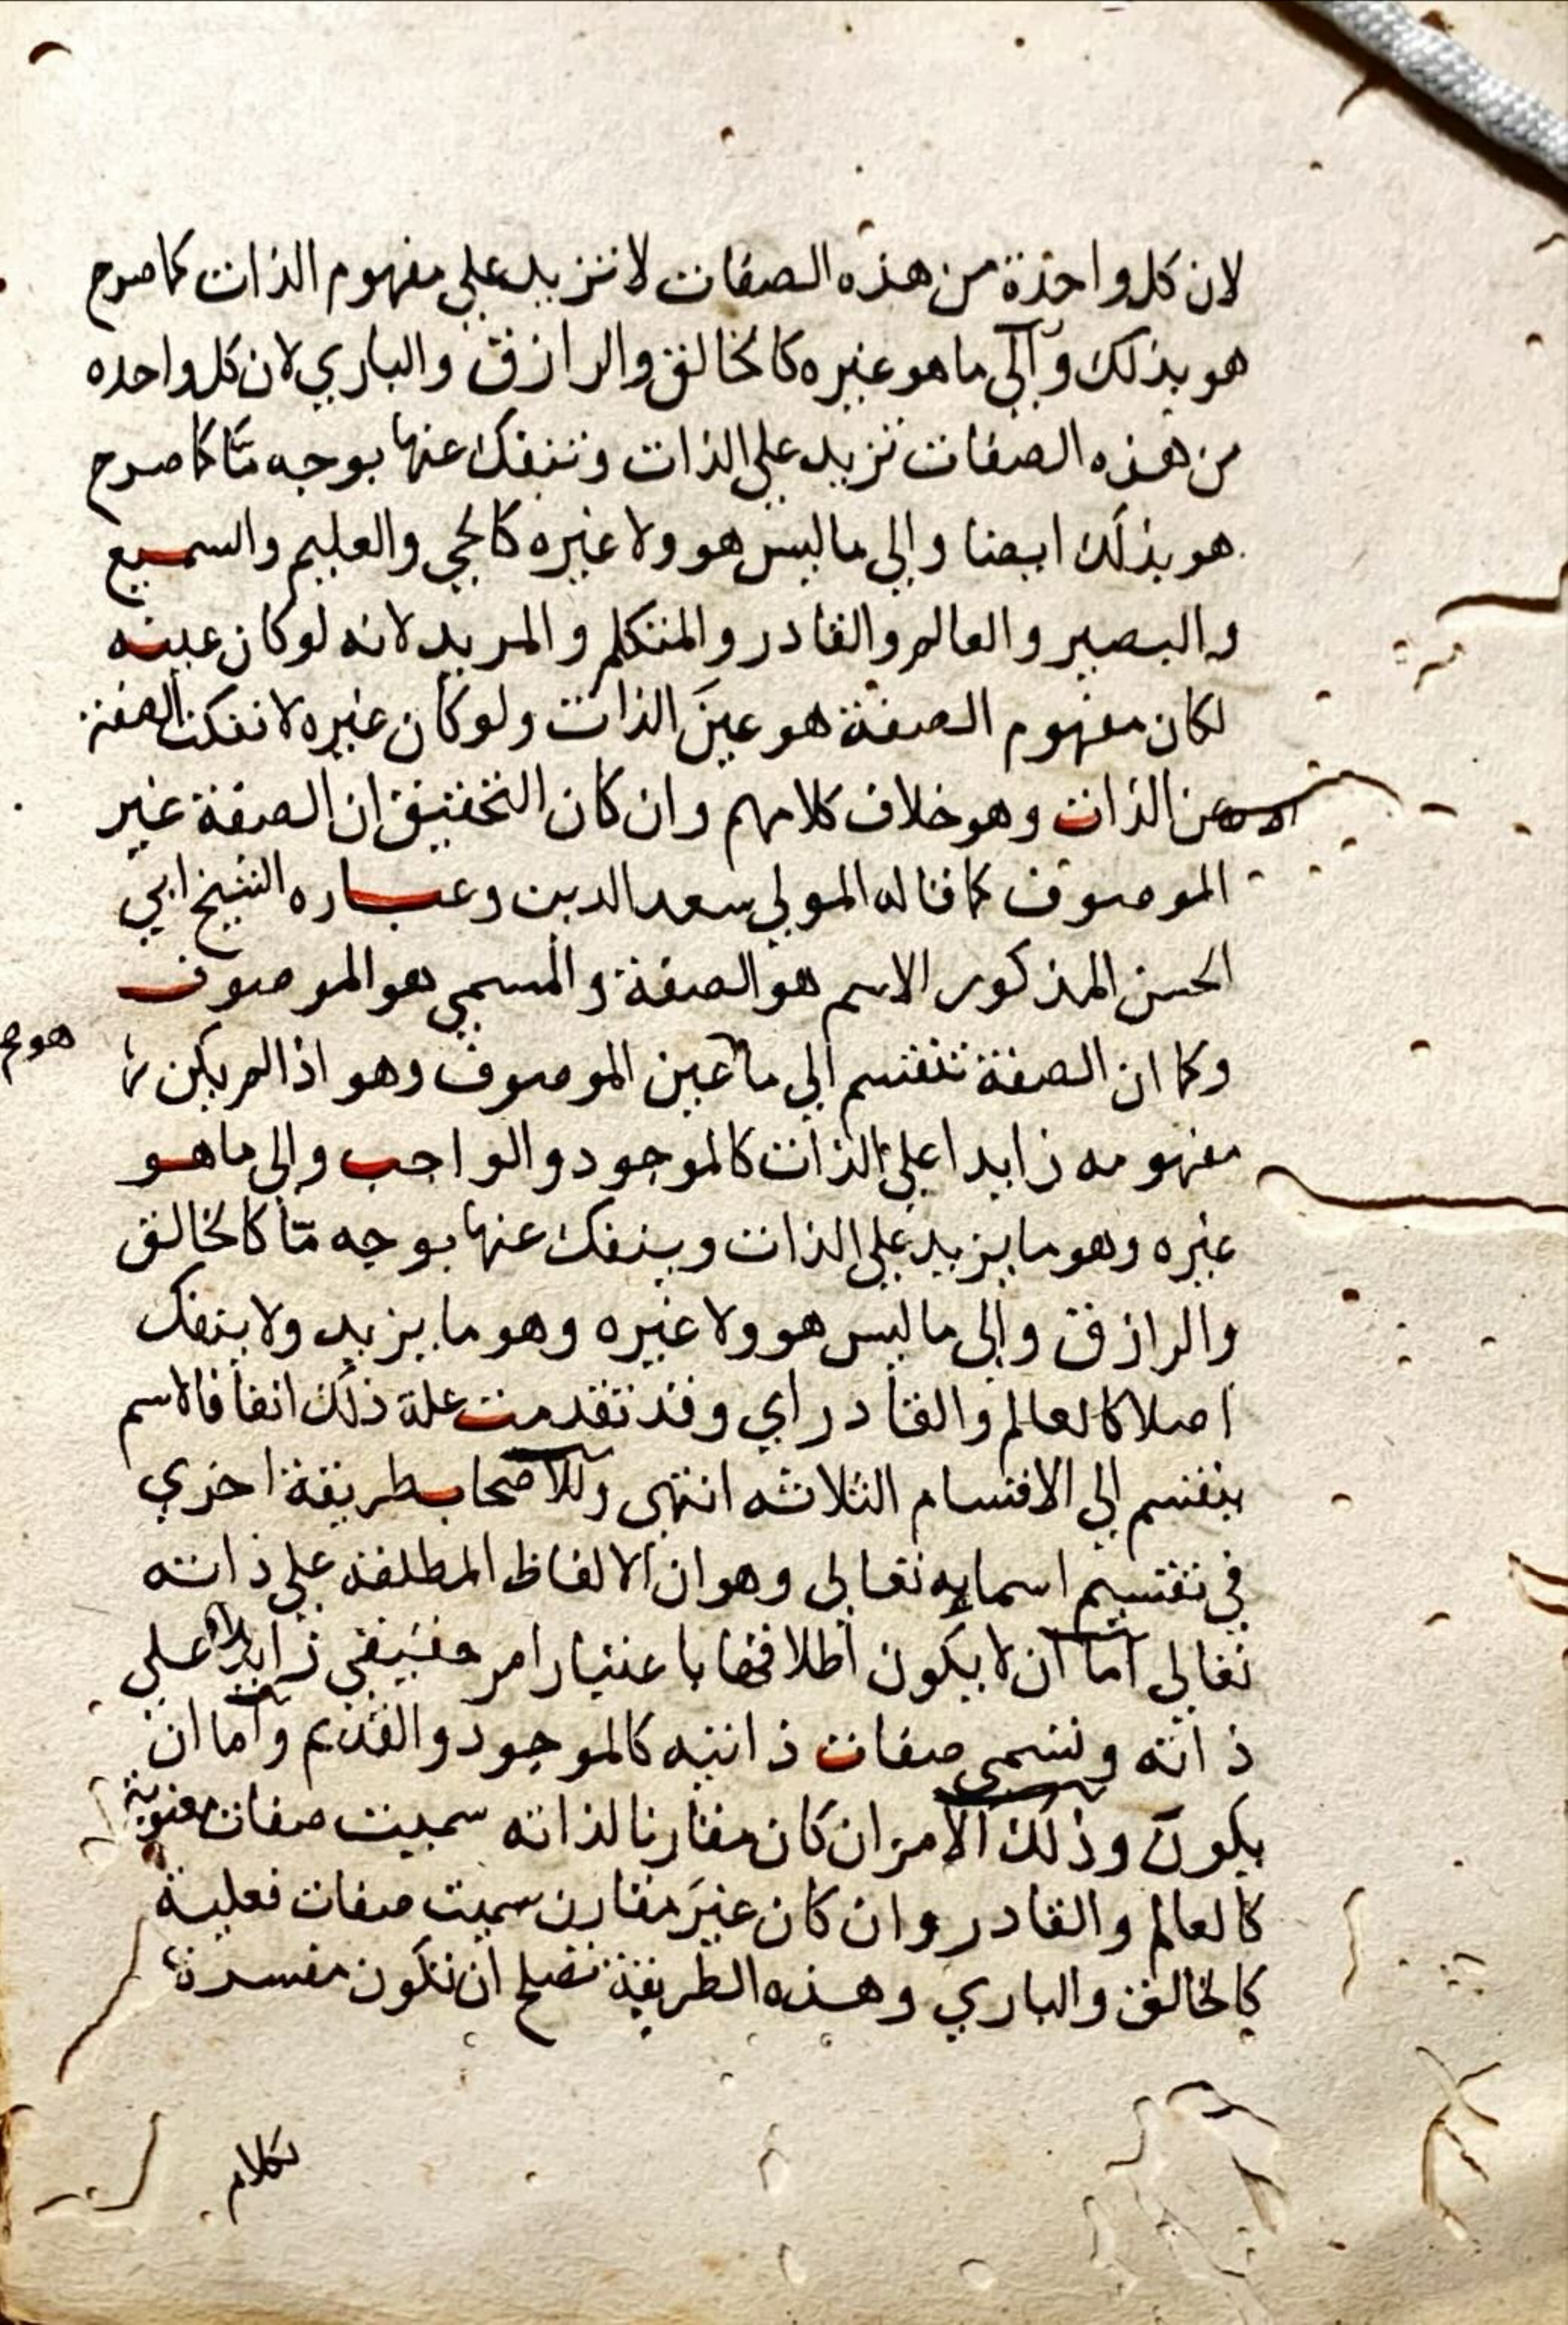 لان كل واحدة من هذه الصفات لا تزيد علي مفهوم الذات كما صرح
هو بذلك وآلي ما هو غيره كالخالق والرازق والباري لان كل واحده
من هذه الصفات تزيد علي الذات وتنفك عنها بوجه مّا كما صرح
هو بذلك ايضا والي ما ليس هو ولا غيره كالحي والعليم والسميع
والبصير والعالم والقادر والمتكلم والمريد لانه لو كان عينه
لكان مفهوم الصفة هو عينَ الذات ولو كان غيره لانفكت الصفة
عن الذات وهو خلاف كلامهم وان كان التحقيق ان الصفة غير
الموصوف كما قاله المولي سعد الدين وعباره الشيخ ابي
الحسن المذكور الاسم هو الصفة والمسمي هو الموصوف
وكما ان الصفة تنقسم الي ما عين الموصوف وهو اذا لم يكن
هو صح
مفهومه زايدا علي الذات كالموجود والواجب والي ما هو
غيره وهو ما يزيد علي الذات وينفك عنها بوجه مّا كالخالق
والرازق والي ما ليس هو ولا غيره وهو ما يزيد ولا ينفك
اصلا كالعالم والقادر اي وقد تقدمت علة ذلك انفا فالاسم
ينقسم الي الاقسام الثلاثه انتهى وللاصحاب طريقة اخري
في تقسيم اسمايه تعالي وهو ان الالفاظ المطلقة علي ذاته
تعالي اما ان لا يكون اطلاقها باعتبار امر حقيقي زايد علي
ذاته وتسمي صفات ذاتيه كالموجود والقديم واما ان
يكون وذلك الامر ان كان مقارنا لذاته سميت صفات معنوية
كالعالم والقادر وان كان غيرَ مقارن سميت صفات فعلية
كالخالق والباري وهذه الطريقة تصلح ان تكون مفسرة
لكلام